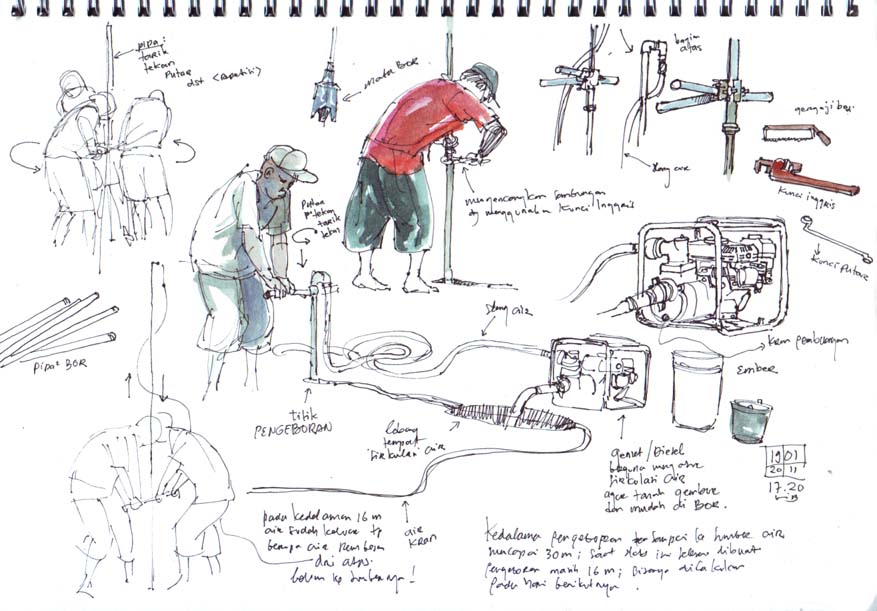 pipa:
tarik
tekan
Putar
dst
mata BOR
bagian
atas
gergaji besi
slang air
Kunci inggris
Kunci Putar
mengencangkan sambungan
dg menggunakan Kunci Inggris
Putar
tekan
tarik
slang air
kran pembuangan
EMBER
Pipa² BOR
titik
PENGEBORAN
lobang
tempat
sirkulasi air
genset/Diesel
berguna
sirkulasi air
agar tanah gembur
dan mudah di BOR.
19 01
20 11
17.20
WIB
pada kedalaman 16 m
air sudah keluar tp
berupa air rembesan
dari atas.
belum ke sumbernya!
air
KRAN
Kedalaman pengeboran sampai ke sumber air
mencapai 30 m; saat sketsa ini dibuat
pengeboran masih 16 m;
pada hari berikutnya.